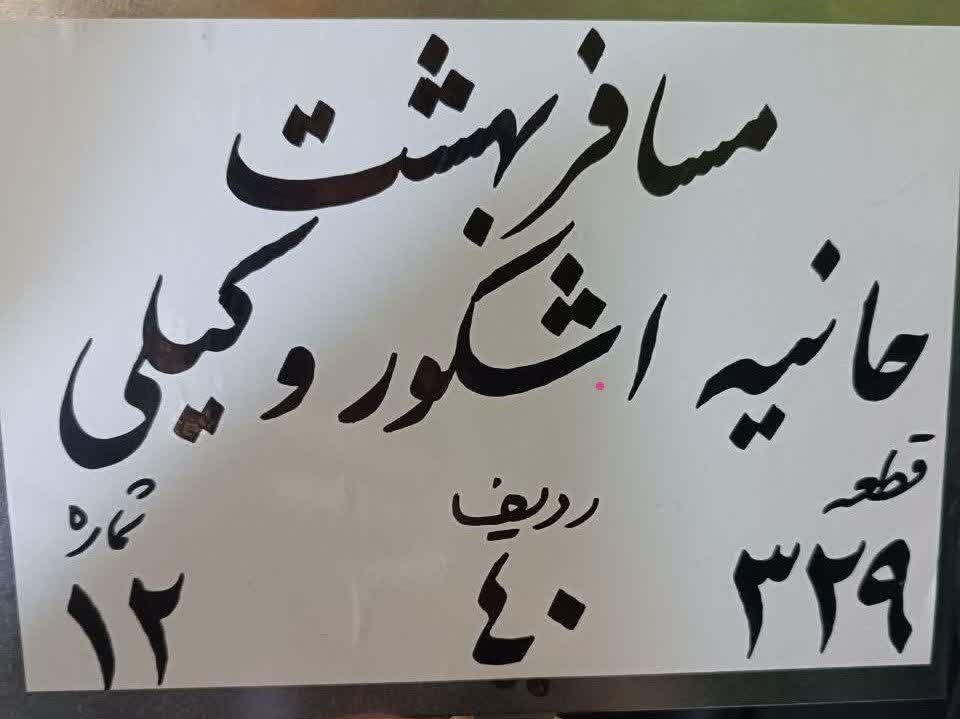 مسافر بهشت
حانیه اشکور وکیلی
قطعه ردیف شماره
۳۲۹ ۴۰ ۱۲